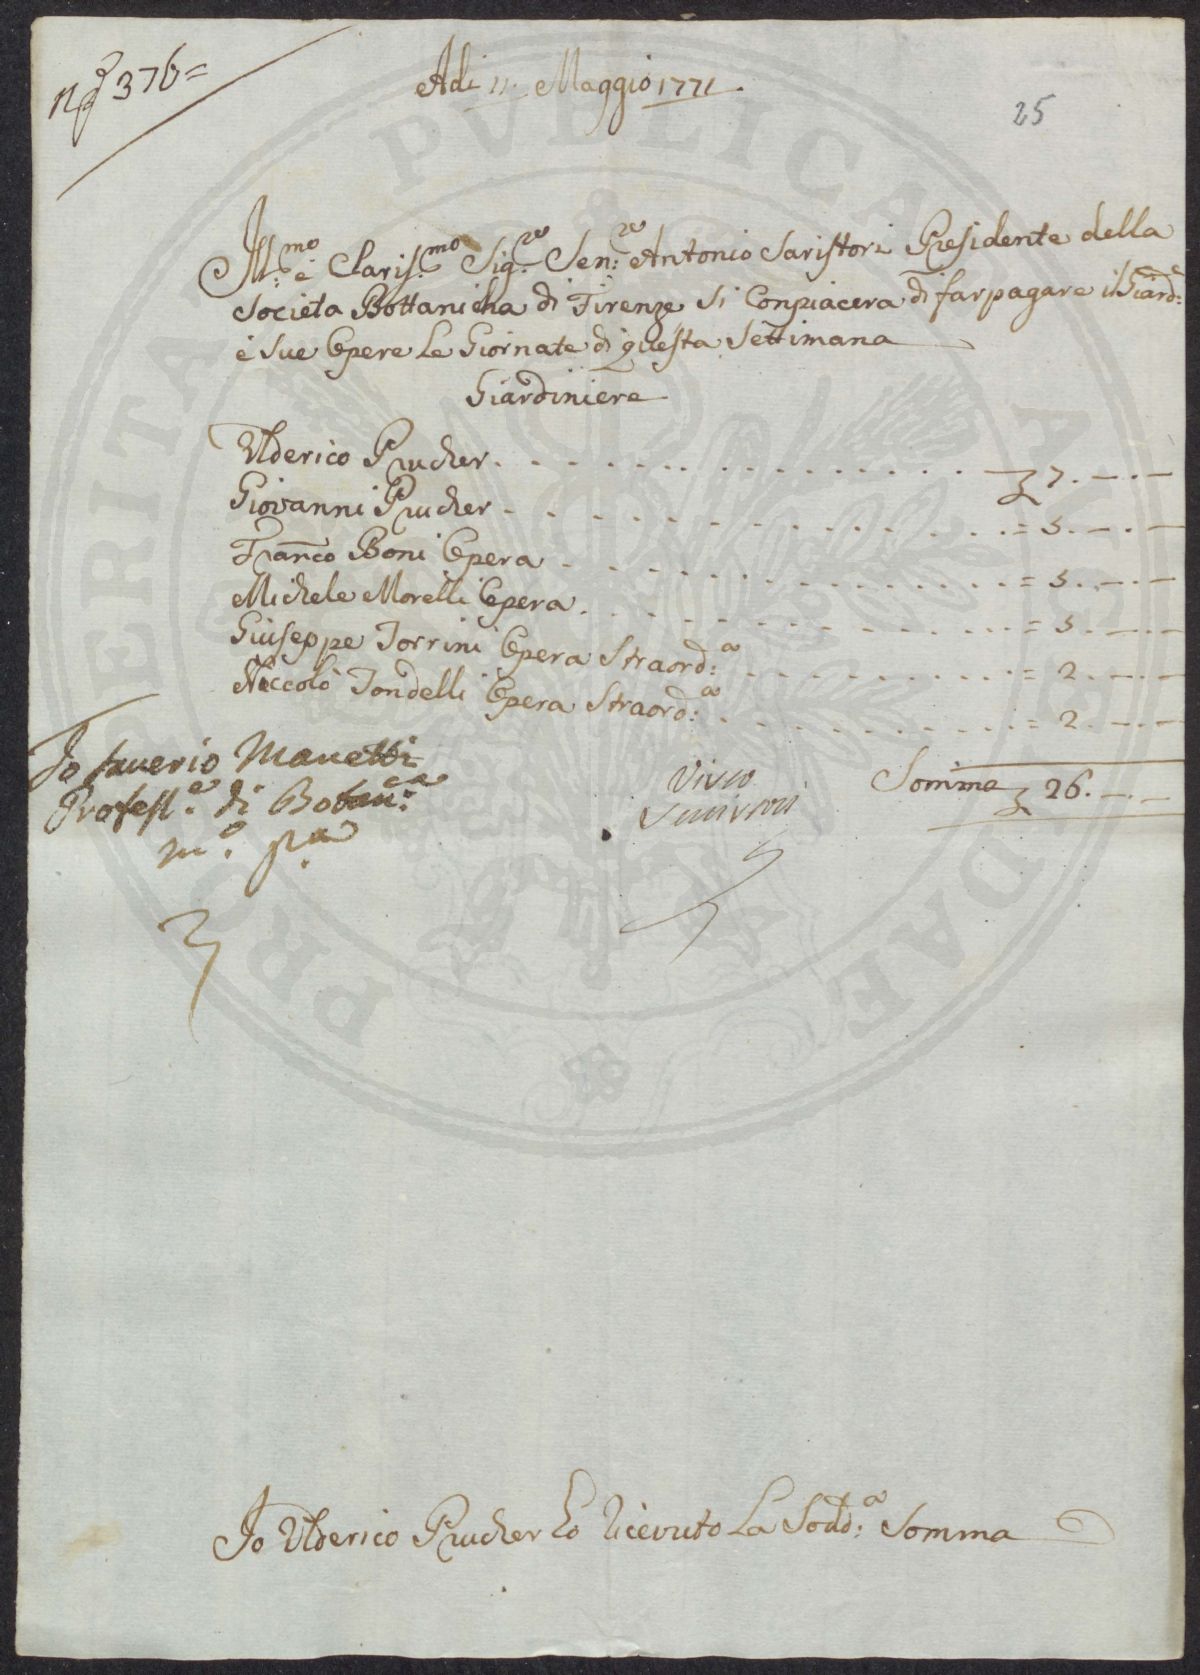 N.° 376=
Adi 11. Maggio 1771.
25
Ill:mo è Clariss:mo Sig:re Sen:re Antonio Saristori Presidente della
Societa Bottanicha di Firenze Si Conpiacera di far pagare il Giard:e
è Sue Opere Le Giornate di questa Settimana
Giardiniere
Ulderico Prucher . . . . . . . . . . 7.—.—
Giovanni Prucher . . . . . . . . . . = 5.—.—
Franco Boni Opera . . . . . . . . . . = 5.—.—
Michele Morelli Opera . . . . . . . . . . = 5.—.—
Giuseppe Torrini Opera Straord:a . . . . . . . . = 2.—.—
Niccolò Tondelli Opera Straord:a . . . . . . . . = 2.—.—
Somma 26.—.—
Io Saverio Manetti
Profess.e di Botan:ca
m.o pa
Visto
Io Ulderico Prucher ho Ricevuto La Sodd:a Somma
PROSPERITATI PVBLICAE AVGENDAE